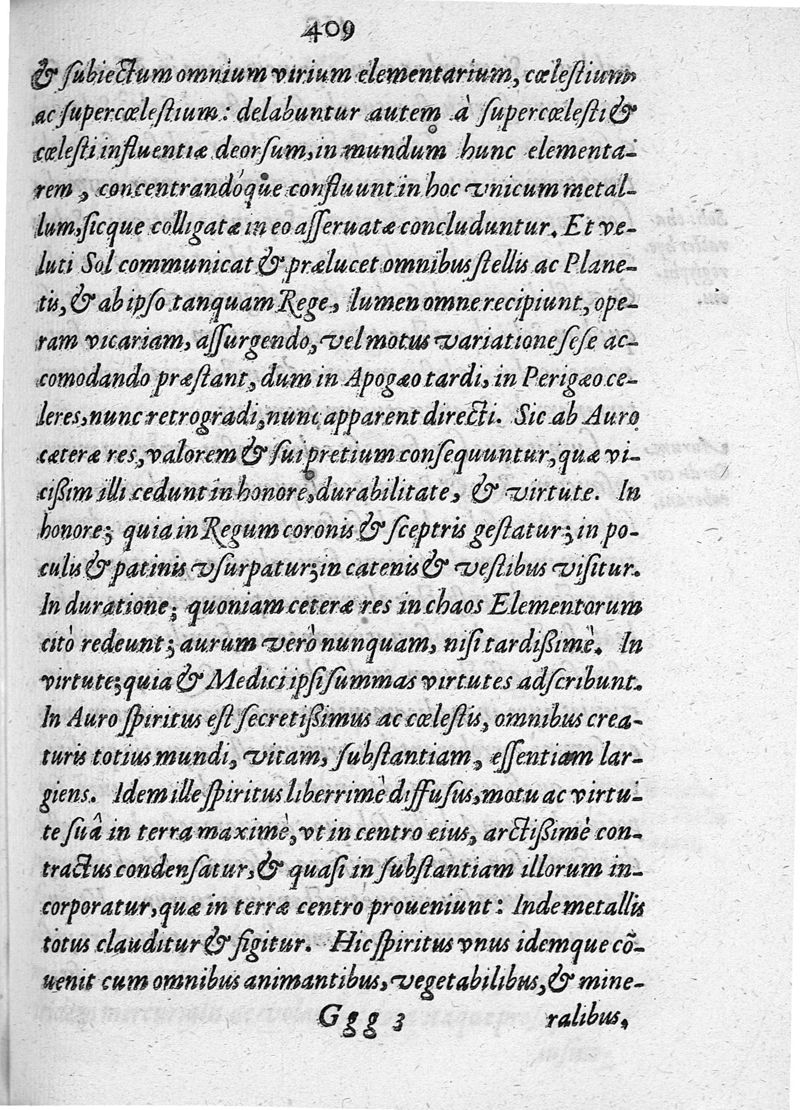 409
& ſubiectum omnium virium elementarium, cœleſtium
ac ſupercœleſtium: delabuntur autem à ſupercœleſti &
cœleſti influentiæ deorſum, in mundum hunc elementa-
rem, concentrandóque confluunt in hoc vnicum metal-
lum, ſicque colligatæ in eo aſſeruatæ concluduntur. Et ve-
luti Sol communicat & prælucet omnibus ſtellis ac Plane-
tis, & ab ipſo tanquam Rege, lumen omne recipiunt, ope-
ram vicariam, aſſurgendo, vel motus variatione ſeſe ac-
comodando præſtant, dum in Apogæo tardi, in Perigæo ce-
leres, nunc retrogradi, nunc apparent directi. Sic ab Auro
cæteræ res, valorem & ſui pretium conſequuntur, quæ vi-
cißim illi cedunt in honore, durabilitate, & virtute. In
honore; quia in Regum coronis & ſceptris geſtatur; in po-
culis & patinis vſurpatur; in catenis & veſtibus viſitur.
In duratione; quoniam ceteræ res in chaos Elementorum
citò redeunt; aurum verò nunquam, niſi tardißimè. In
virtute; quia & Medici ipſi ſummas virtutes adſcribunt.
In Auro ſpiritus eſt ſecretißimus ac cœleſtis, omnibus crea-
turis totius mundi, vitam, ſubſtantiam, eſſentiam lar-
giens. Idem ille ſpiritus liberrimè diffuſus, motu ac virtu-
te ſuâ in terra maximè, vt in centro eius, arctißimè con-
tractus condenſatur, & quaſi in ſubſtantiam illorum in-
corporatur, quæ in terræ centro proueniunt: Inde metallis
totus clauditur & figitur. Hic ſpiritus vnus idemque cõ-
uenit cum omnibus animantibus, vegetabilibus, & mine-
Ggg 3 ralibus,